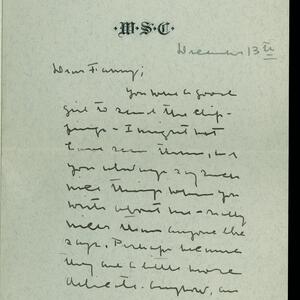 ·W·S·C·
December 13th
Dear Fanny;
You were a good
girl to send the clip-
pings - I might not
have seen them, and
you always say such
nice things when you
write about me - really
nicer than anyone else
says. Perhaps because
they are a little more
delicate. Anyhow, an